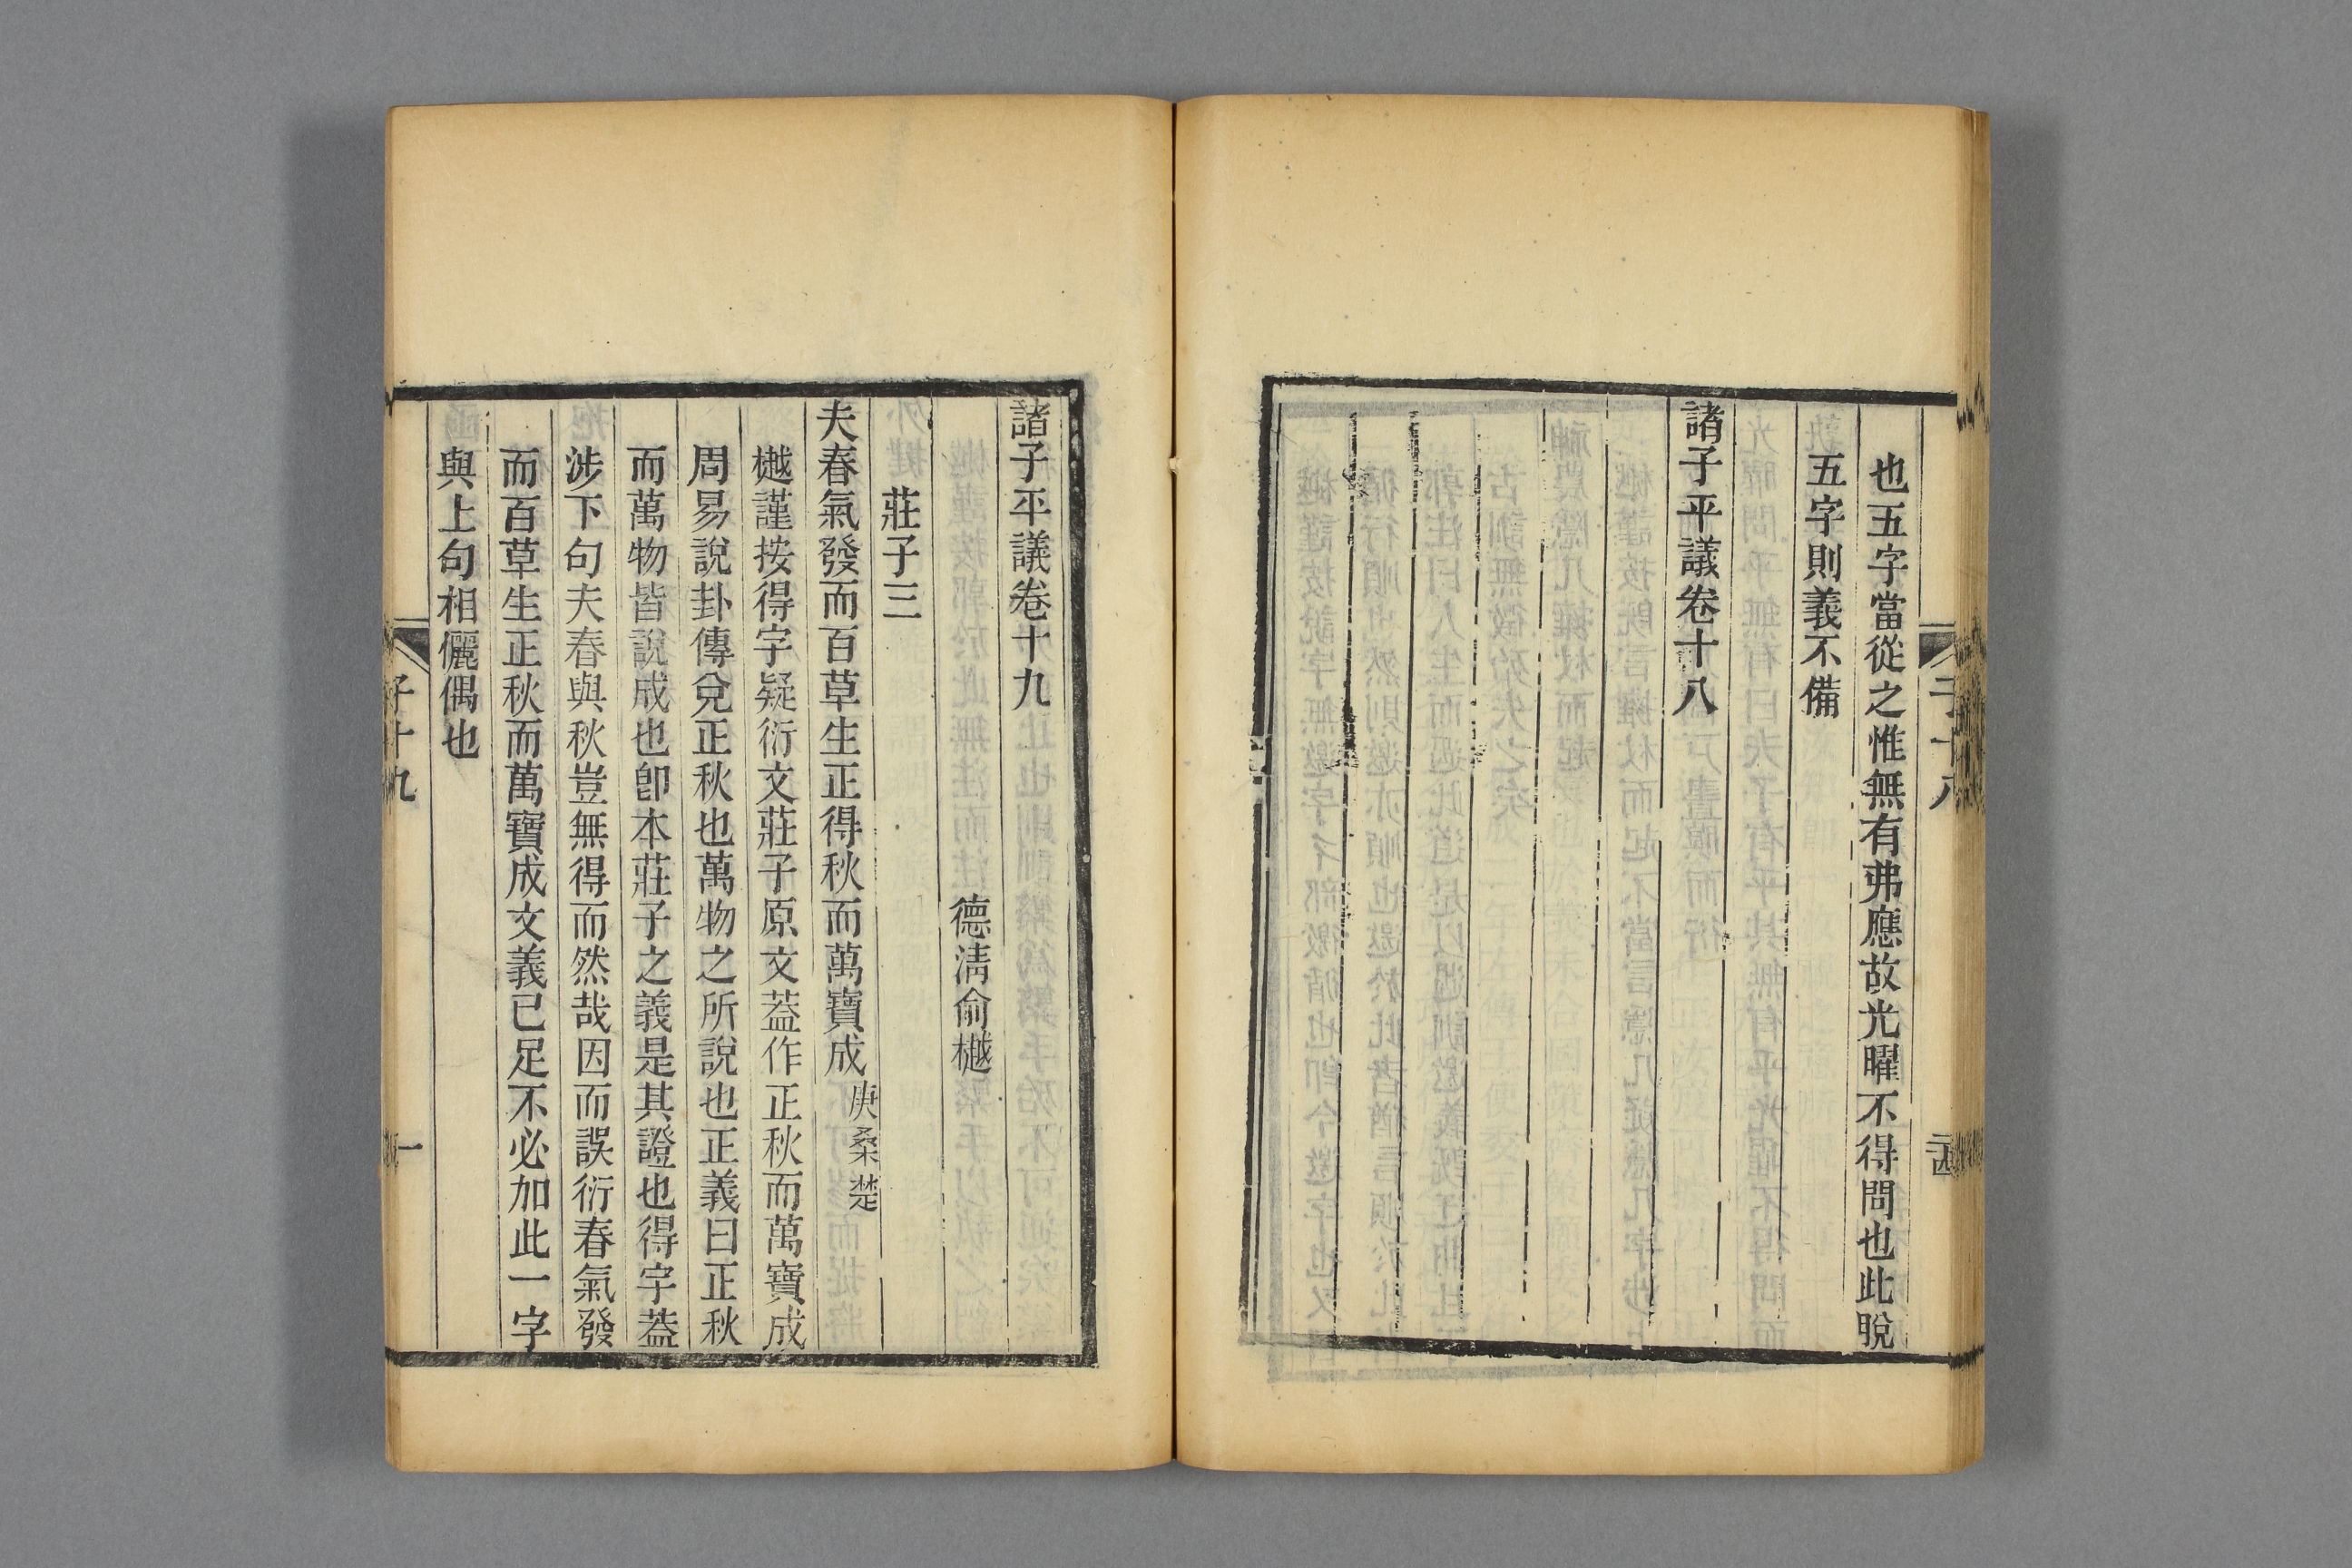 也五字當從之惟無有弗應故光曜不得問也此脫
五字則義不備
諸子平議卷十八
諸子平議卷十九
德清俞樾
莊子三
夫春氣發而百草生正得秋而萬寶成庚桑楚
樾謹按得字疑衍文莊子原文蓋作正秋而萬寶成
周易說卦傳兌正秋也萬物之所說也正義曰正秋
而萬物皆說成也卽本莊子之義是其證也得字蓋
涉下句夫春與秋豈無得而然哉因而誤衍春氣發
而百草生正秋而萬寶成文義已足不必加此一字
與上句相儷偶也
子十九
一